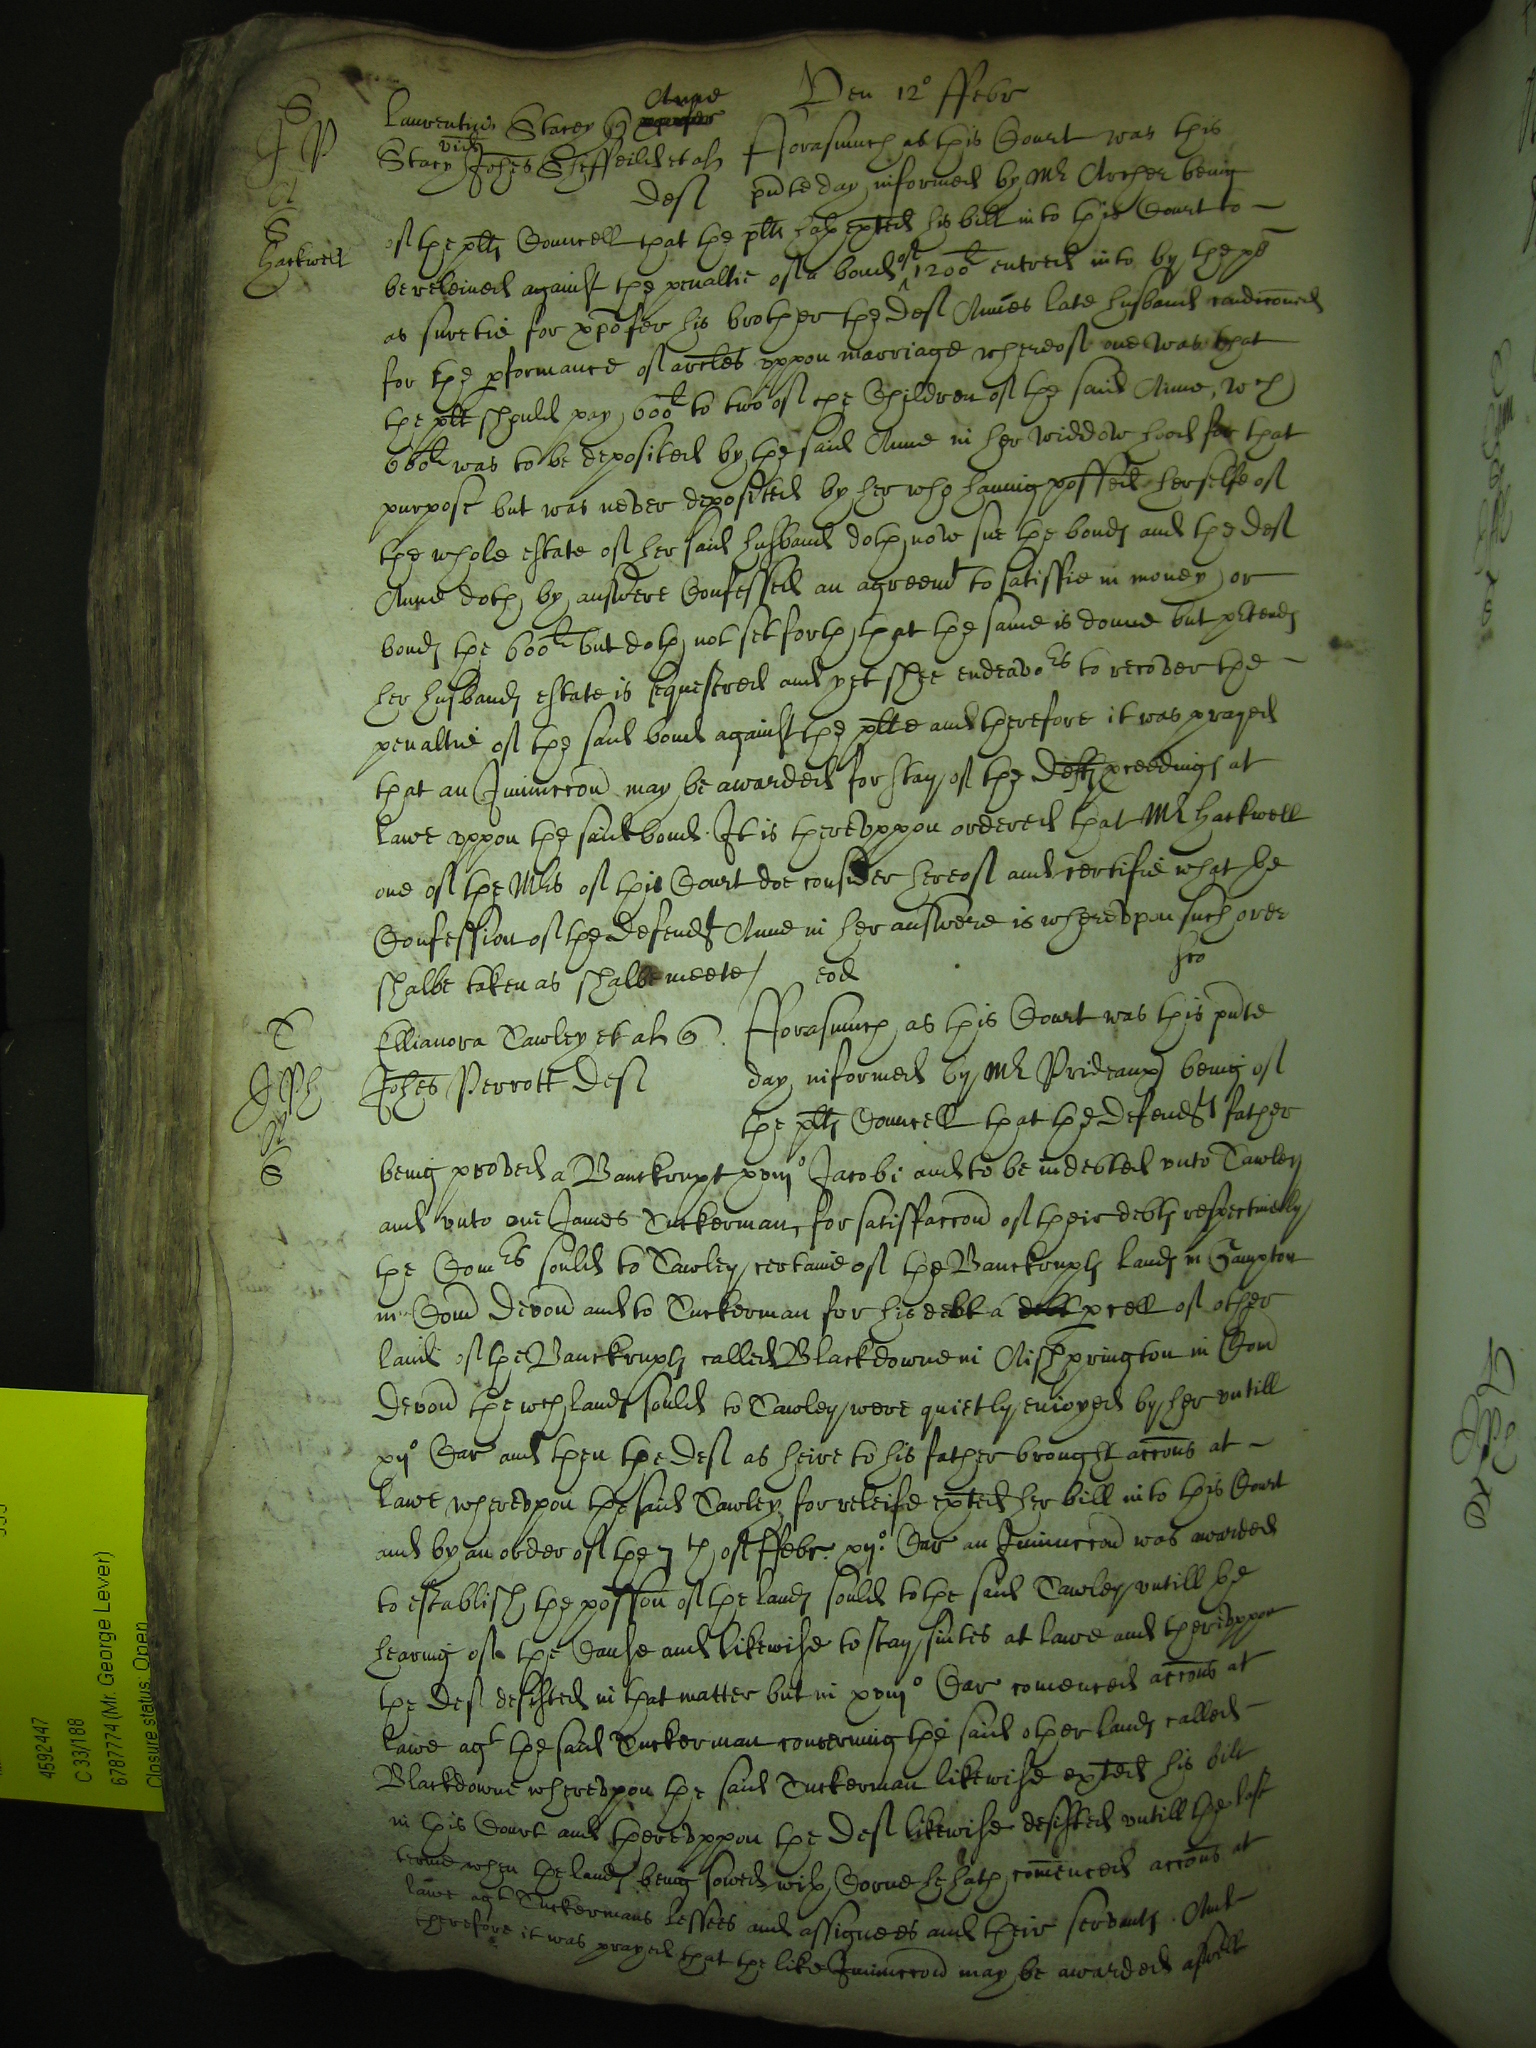 Ven 12° ffebr
Laurentius Stacy q Anne
Stacy vid Johes Sheffeild et al Forasmuch as this Court was this
Def pnte day informed by Mr Archer being
of the plts Councell that the plt hath exħted his bill into this Court to
be releived against the penaltie of a bond of 1200l entred into by the plt
as suretie for xpofer his brother the Def Annes late husband condiconed
for the pformance of arcles uppon marriage whereof one was that
the plt should pay 600l to two of the Children of the said Anne, wch
600l was to be deposited by the said Anne in her widdowhood for that
purpose but was never deposited by her who having possed herselfe of
the whole estate of her said husband doth now sue the bond and the Def
Anne doth by answere Confessed an agreemt to satisfie in money or
bond the 600l but doth not set forth that the same is donne but ptends
her husbands estate is sequestred and yet shee endeavors to recover the
penaltie of the said bond against the plte and therefore it was prayed
that an Iniunccon may be awarded for stay of the Defts pceedings at
lawe uppon the said bond. It is thereuppon ordered that Mr Hackwell
one of the Mrs of this Court doe consider hereof and certifie what the
Confession of the defendt Anne in her answere is whereupon such order
shalbe taken as shalbe meete /
S
J P
A
S
Hackwell
eod
Ellianora Tawley et al q Forasmuch as this Court was this pnte
Johes Perrott Def day informed by Mr Prideaux being of
the plts Councell that the defendts father
being proved a Banckrupt xviij° Jacobi and to be indebted unto Tawley
and unto one James Tuckerman, for satisfaccon of their debts respectively
the Comrs sould to Tawley certaine of the Banckrupts lands in Hampton
in Com Devon and to Tuckerman for his debt a pcell of other
lands of the Banckrupts called Blackdowne in Aishprington in Com
Devon the wch lands sould to Tawley were quietly enioyed by her untill
xij° Car and then the Def as heire to his father brought accons at
lawe whereupon the said Tawley for releife exħted her bill into this Court
and by an order of the 7th of ffebr. xij° Car an Iniunccon was awarded
to establish the possion of the lands sould to the said Tawley untill the
hearing of the Cause and likewise to stay suites at lawe and thereuppon
the Def desisted in that matter but in xviij° Car comenced accons at
lawe agt the said Tuckerman concerning the said other lands called
Blackdowne whereupon the said Tuckerman likewise exħted his bill
in this Court and thereuppon the Def likewise desisted untill the last
terme when the lands being sowed with Corne he hath comenced accons at
lawe agt Tuckermans lessees and assignees and their servants. And
therefore it was prayed that the like Iniunccon may be awarded aswell
4592447
C 33/188
6787774 (Mr. George Lever)
Closure status: Open